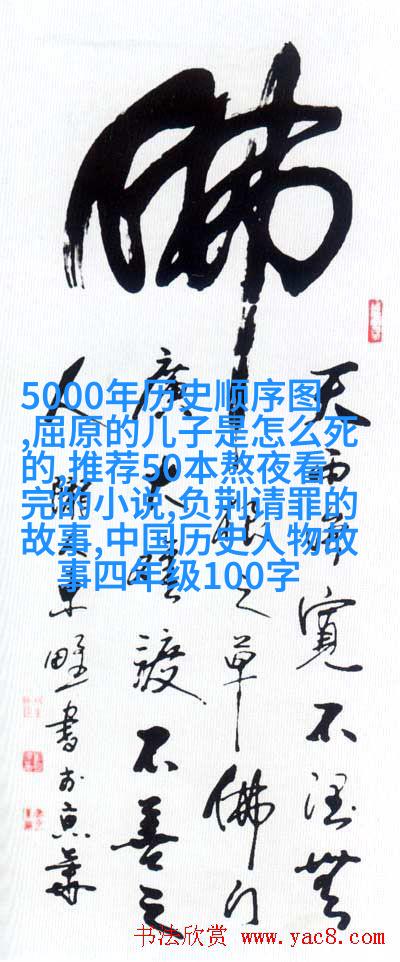 佛
天雨雖寬不润無
根之草佛门
廣大難渡不善之
人
東野書於京華
5000年历史顺序图
,屈原的儿子是怎么死
的,推荐50本熬夜看
完的小说,负荆请罪的
故事,中国历史人物故
事四年级100字
书法欣赏 www.yac8.com